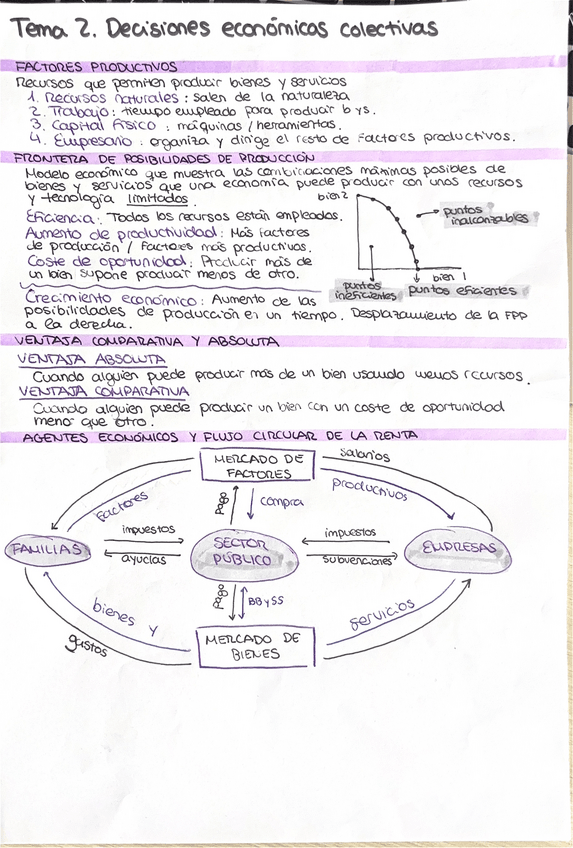 Tema 2. Decisiones económicas colectivas
FACTORES PRODUCTIVOS
Recursos que permiten producir bienes y servicios
1. Recursos naturales : salen de la naturaleza
2. Trabajo : tiempo empleado para producir b y s.
3. Capital físico : máquinas / herramientas.
4. Empresario : organiza y dirige el resto de factores productivos.
FRONTERA DE POSIBILIDADES DE PRODUCCIÓN
Modelo económico que muestra las combinaciones máximas posibles de
bienes y servicios que una economía puede producir con unos recursos
y tecnología limitados.
Eficiencia: Todos los recursos están empleados.
Aumento de productividad: Más factores
de producción / Factores más productivos.
Coste de oportunidad: Producir más de
un bien supone producir menos de otro.
bien 2
puntos
inalcanzables
bien 1
puntos
ineficientes
puntos eficientes
Crecimiento económico: Aumento de las
posibilidades de producción en un tiempo. Desplazamiento de la FPP
a la derecha.
VENTAJA COMPARATIVA Y ABSOLUTA
VENTAJA ABSOLUTA
Cuando alguien puede producir más de un bien usando menos recursos.
VENTAJA COMPARATIVA
Cuando alguien puede producir un bien con un coste de oportunidad
menor que otro.
AGENTES ECONÓMICOS Y FLUJO CIRCULAR DE LA RENTA
MERCADO DE
FACTORES
salarios
Factores
productivos
pago
compra
FAMILIAS
impuestos
ayudas
SECTOR
PÚBLICO
impuestos
subvenciones
EMPRESAS
pago
BB y SS
bienes y
servicios
gastos
MERCADO DE
BIENES